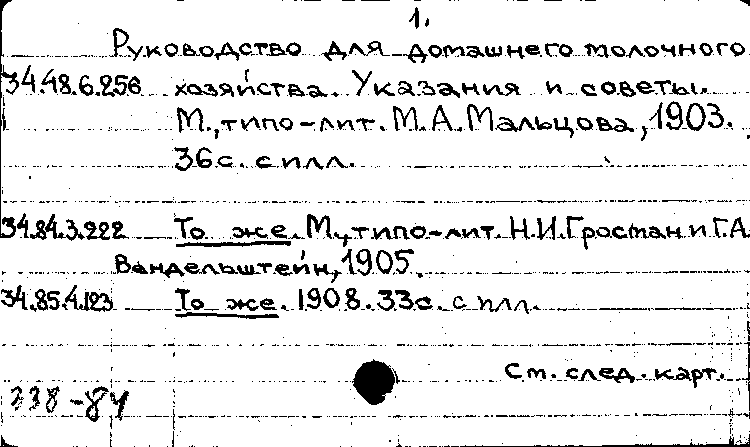 1.
Руководство для домашнего молочного
34.48.6.256 хозяйства. Указания и советы.
М., типо-лит. М.А. Мальцова, 1903.
36с. с илл.
34.84.3.222 То же. М., типо-лит. Н.И. Гросман и Г.А.
Вандельштейн, 1905.
34.85.4.123 То же. 1908. 33с. с илл.
См. след. карт.
338-84